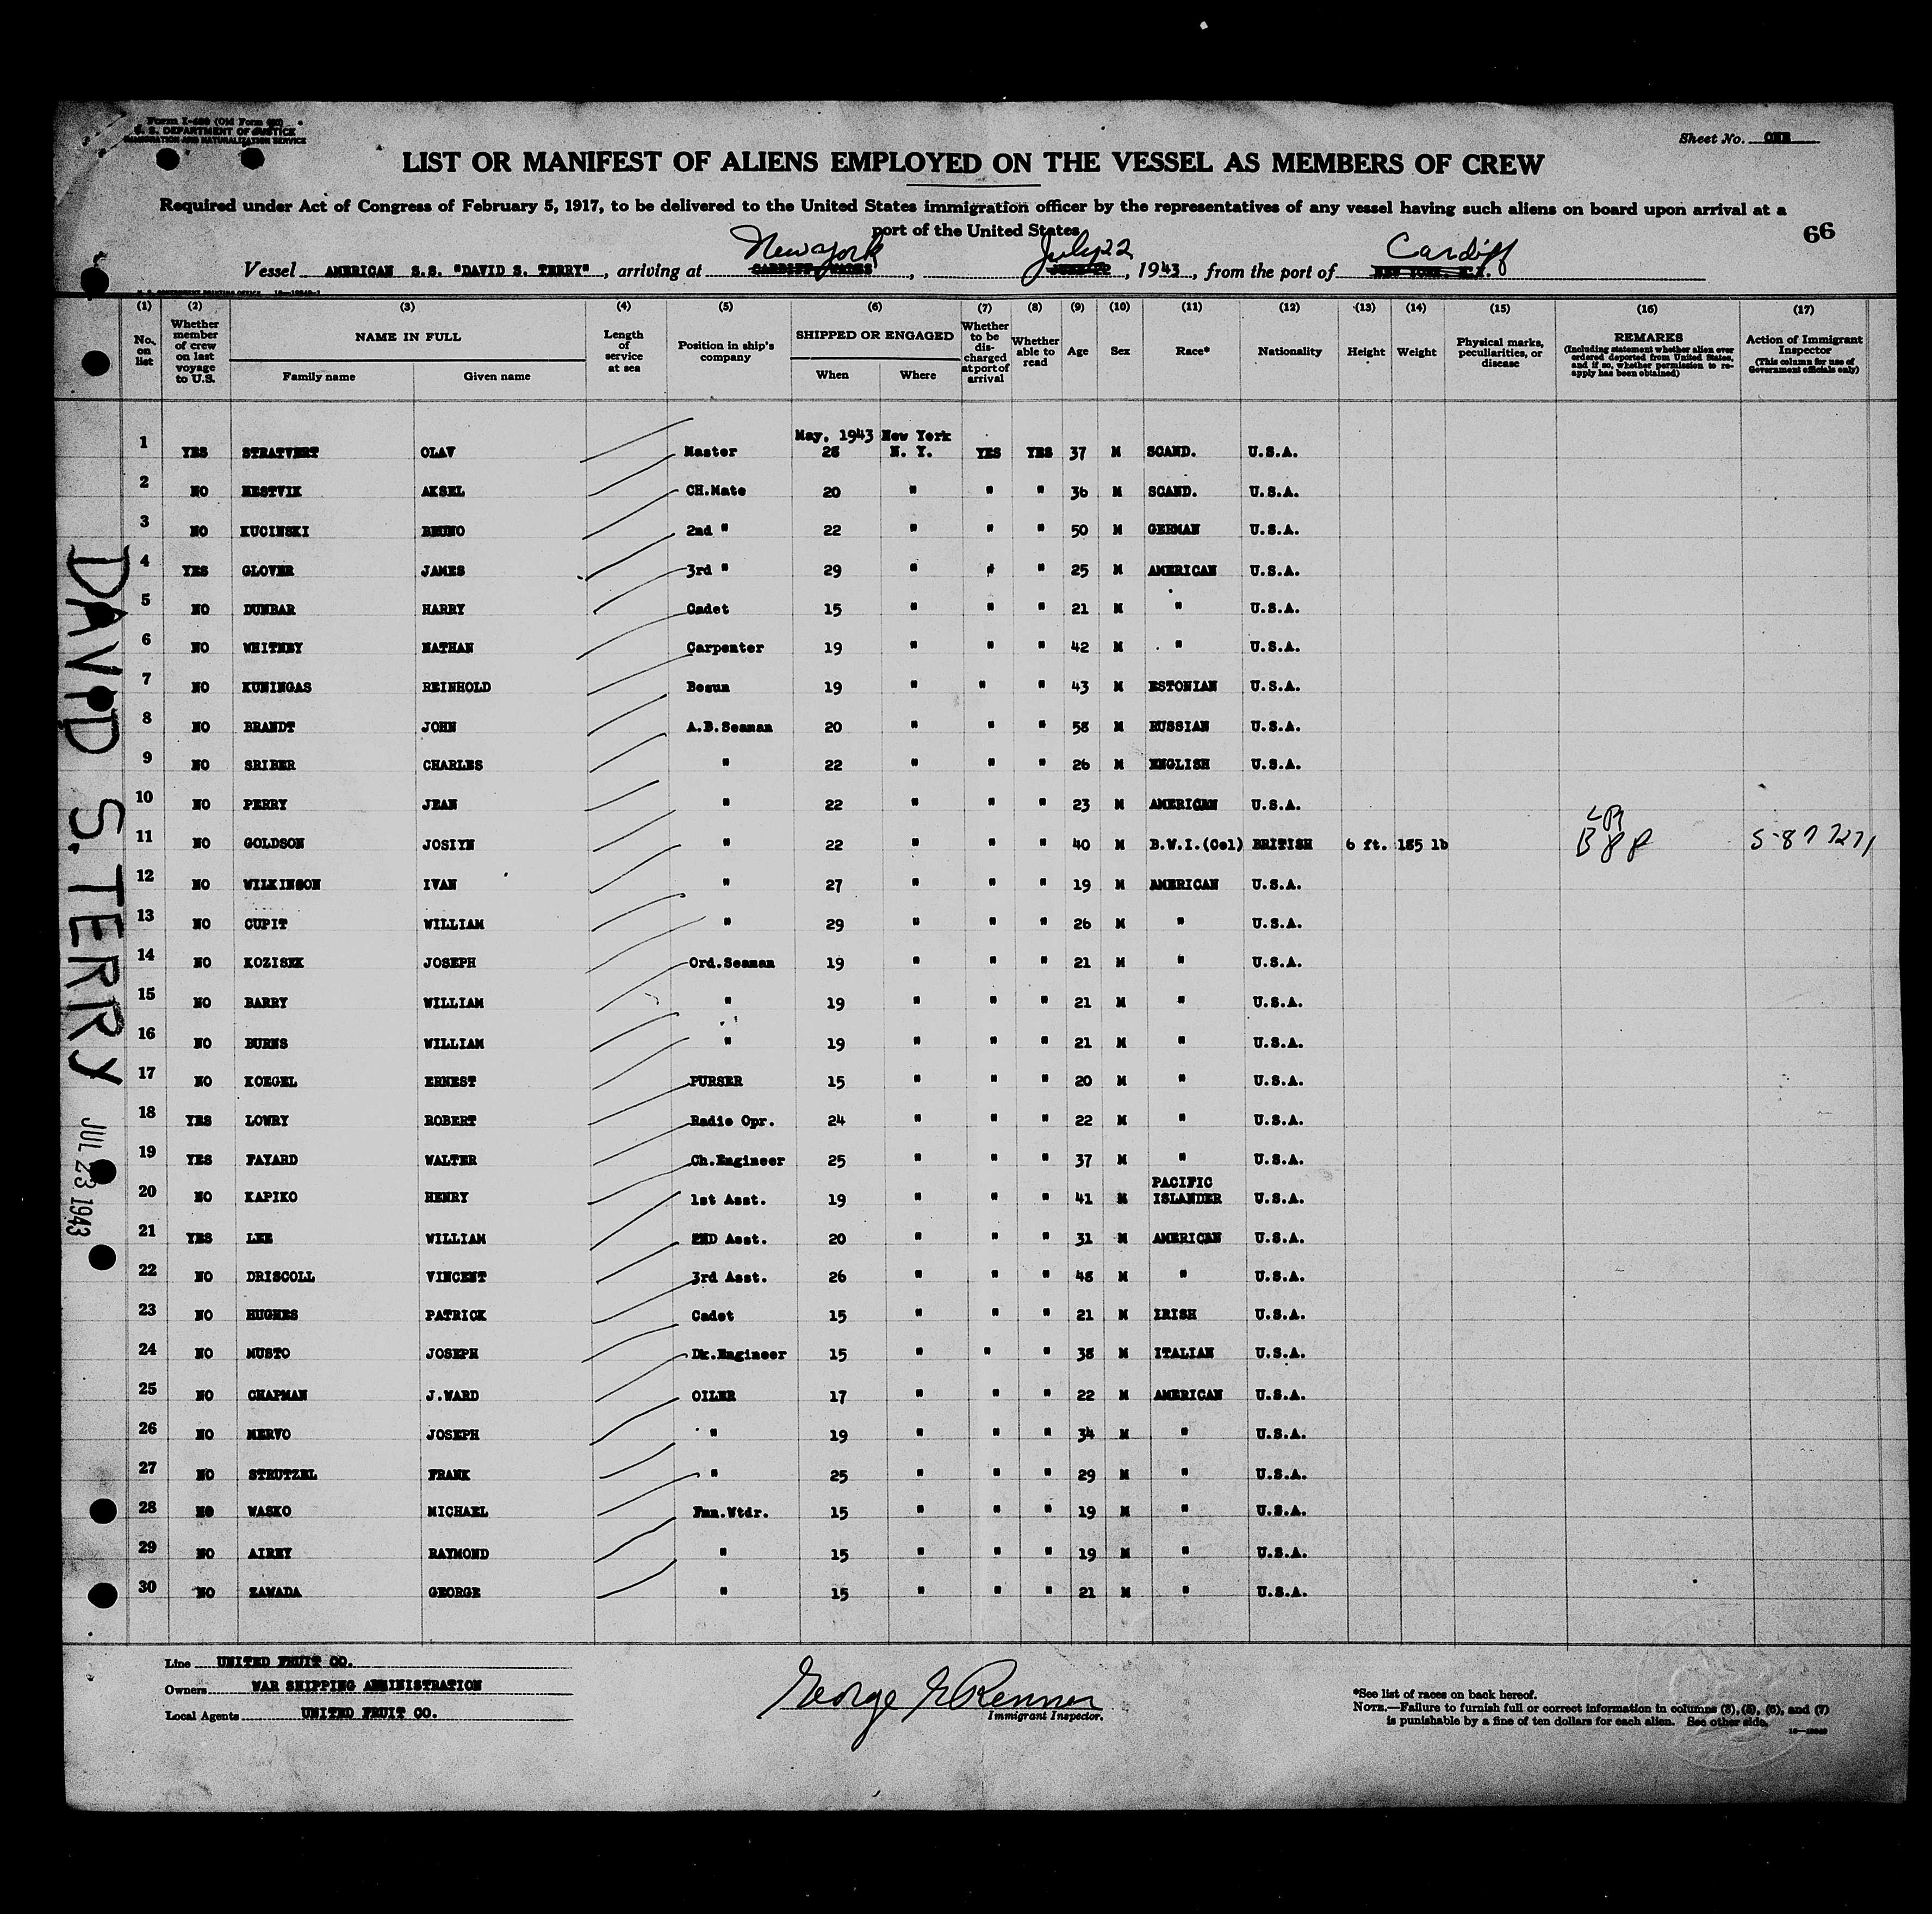 Form I-480 (Old Form 680)
U. S. DEPARTMENT OF JUSTICE
IMMIGRATION AND NATURALIZATION SERVICE
Sheet No. ONE
LIST OR MANIFEST OF ALIENS EMPLOYED ON THE VESSEL AS MEMBERS OF CREW
Required under Act of Congress of February 5, 1917, to be delivered to the United States immigration officer by the representatives of any vessel having such aliens on board upon arrival at a
port of the United States
66
New York July 22 Cardiff
Vessel AMERICAN S.S. "DAVID S. TERRY", arriving at CARDIFF, WALES, JUNE 22, 1943, from the port of NEW YORK, N.Y.
(1) (2) (3) (4) (5) (6) (7) (8) (9) (10) (11) (12) (13) (14) (15) (16) (17)
No. on list
Whether member of crew on last voyage to U.S.
NAME IN FULL
Family name Given name
Length of service at sea
Position in ship's company
SHIPPED OR ENGAGED
When Where
Whether to be discharged at port of arrival
Whether able to read
Age Sex Race* Nationality Height Weight
Physical marks, peculiarities, or disease
REMARKS
(Including statement whether alien ever ordered deported from United States, and if so, whether permission to reapply has been obtained)
Action of Immigrant Inspector
(This column for use of Government officials only)
May, 1943 New York
1 YES STRATVERT OLAV Master 28 N. Y. YES YES 37 M SCAND. U.S.A.
2 NO HESTVIK AKSEL CH.Mate 20 " " " 36 M SCAND. U.S.A.
3 NO KUCINSKI BRUNO 2nd " 22 " " " 50 M GERMAN U.S.A.
4 YES GLOVER JAMES 3rd " 29 " " " 25 M AMERICAN U.S.A.
5 NO DUNBAR HARRY Cadet 15 " " " 21 M " U.S.A.
6 NO WHITNEY NATHAN Carpenter 19 " " " 42 M " U.S.A.
7 NO KUNINGAS REINHOLD Bosun 19 " " " 43 M ESTONIAN U.S.A.
8 NO BRANDT JOHN A.B.Seaman 20 " " " 58 M RUSSIAN U.S.A.
9 NO SRIBER CHARLES " 22 " " " 26 M ENGLISH U.S.A.
10 NO PERRY JEAN " 22 " " " 23 M AMERICAN U.S.A.
11 NO GOLDSON JOSIYN " 22 " " " 40 M B.W.I.(Col) BRITISH 6 ft. 185 lb
12 NO WILKINSON IVAN " 27 " " " 19 M AMERICAN U.S.A.
13 NO CUPIT WILLIAM " 29 " " " 26 M " U.S.A.
14 NO KOZISEK JOSEPH Ord.Seaman 19 " " " 21 M " U.S.A.
15 NO BARRY WILLIAM " 19 " " " 21 M " U.S.A.
16 NO BURNS WILLIAM " 19 " " " 21 M " U.S.A.
17 NO KOEGEL ERNEST PURSER 15 " " " 20 M " U.S.A.
18 YES LOWRY ROBERT Radio Opr. 24 " " " 22 M " U.S.A.
19 YES FAYARD WALTER Ch.Engineer 25 " " " 37 M " U.S.A.
20 NO KAPIKO HENRY 1st Asst. 19 " " " 41 M PACIFIC ISLANDER U.S.A.
21 YES LEE WILLIAM 2ND Asst. 20 " " " 31 M AMERICAN U.S.A.
22 NO DRISCOLL VINCENT 3rd Asst. 26 " " " 48 M " U.S.A.
23 NO HUGHES PATRICK Cadet 15 " " " 21 M IRISH U.S.A.
24 NO MUSTO JOSEPH Dk.Engineer 15 " " " 38 M ITALIAN U.S.A.
25 NO CHAPMAN J.WARD OILER 17 " " " 22 M AMERICAN U.S.A.
26 NO MERVO JOSEPH " 19 " " " 34 M " U.S.A.
27 NO STRUTZEL FRANK " 25 " " " 29 M " U.S.A.
28 NO WASKO MICHAEL Fmn.Wtdr. 15 " " " 19 M " U.S.A.
29 NO AIREY RAYMOND " 15 " " " 19 M " U.S.A.
30 NO ZAWADA GEORGE " 15 " " " 21 M " U.S.A.
DAVID S. TERRY
JUL 23 1943
Line UNITED FRUIT CO.
Owners WAR SHIPPING ADMINISTRATION
Local Agents UNITED FRUIT CO.
George E Renner
Immigrant Inspector.
*See list of races on back hereof.
NOTE.—Failure to furnish full or correct information in columns (3), (5), (6), and (7)
is punishable by a fine of ten dollars for each alien. See other side.